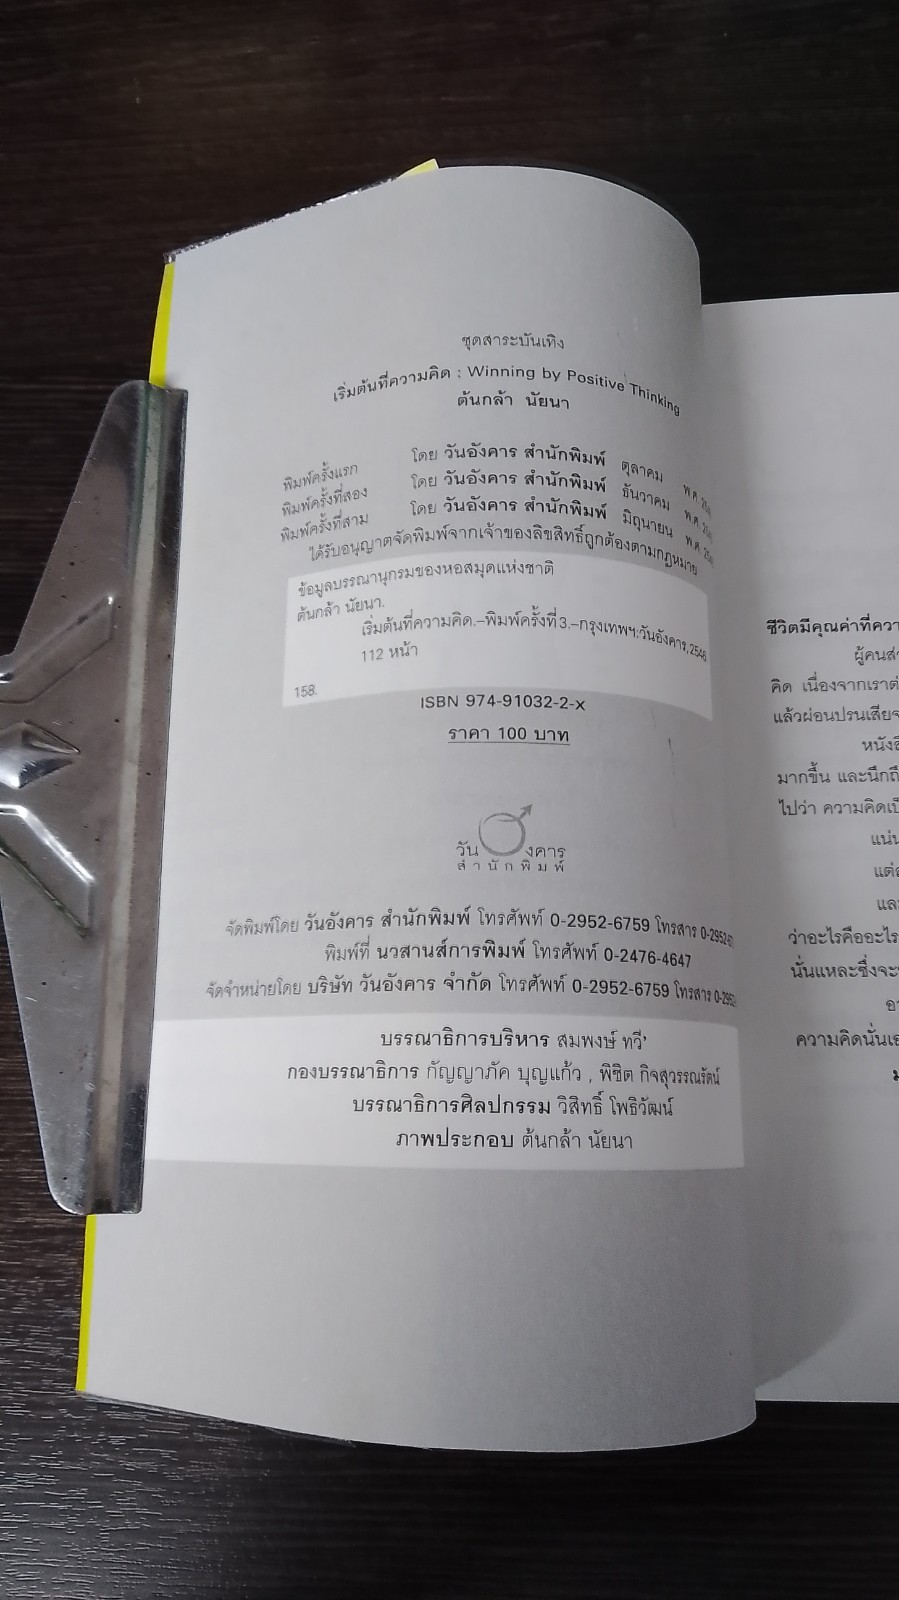 ชุดสาระบันเทิง
เริ่มต้นที่ความคิด : Winning by Positive Thinking
ต้นกล้า นัยนา
พิมพ์ครั้งแรก โดย วันอังคาร สำนักพิมพ์ ตุลาคม พ.ศ.
พิมพ์ครั้งที่สอง โดย วันอังคาร สำนักพิมพ์ ธันวาคม พ.ศ.
พิมพ์ครั้งที่สาม โดย วันอังคาร สำนักพิมพ์ มิถุนายน พ.ศ.
ได้รับอนุญาตจัดพิมพ์จากเจ้าของลิขสิทธิ์ถูกต้องตามกฎหมาย
ข้อมูลบรรณานุกรมของหอสมุดแห่งชาติ
ต้นกล้า นัยนา.
เริ่มต้นที่ความคิด.–พิมพ์ครั้งที่ 3.–กรุงเทพฯ:วันอังคาร,2546
112 หน้า
158.
ISBN 974-91032-2-x
ราคา 100 บาท
วันอังคาร
สำนักพิมพ์
จัดพิมพ์โดย วันอังคาร สำนักพิมพ์ โทรศัพท์ 0-2952-6759 โทรสาร
พิมพ์ที่ นวสานส์การพิมพ์ โทรศัพท์ 0-2476-4647
จัดจำหน่ายโดย บริษัท วันอังคาร จำกัด โทรศัพท์ 0-2952-6759 โทรสาร
บรรณาธิการบริหาร สมพงษ์ ทวี'
กองบรรณาธิการ กัญญาภัค บุญแก้ว , พิชิต กิจสุวรรณรัตน์
บรรณาธิการศิลปกรรม วิสิทธิ์ โพธิวัฒน์
ภาพประกอบ ต้นกล้า นัยนา
ชีวิตมีคุณค่าที่ความ
ผู้คนส่
คิด เนื่องจากเราต่
แล้วผ่อนปรนเสียจ
หนังสื
มากขึ้น และนึกถึ
ไปว่า ความคิดเป็
แน่น
แต่
และ
ว่าอะไรคืออะไร
นั่นแหละซึ่งจะ
ความคิดนั่นเอ